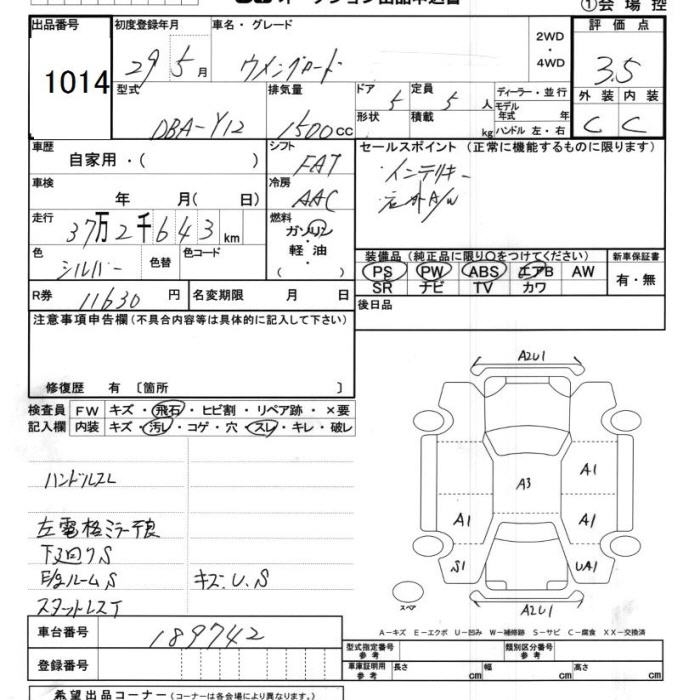 ①会場控
出品番号 初度登録年月 車名・グレード 2WD・4WD 評価点
1014 29 5月 ウイングロード 3.5
型式 排気量 ドア 5 定員 5人 ディーラー・並行
モデル年式 年
形状 積載 kg ハンドル 左・右
外装 内装
DBA-Y12 1500cc C C
車歴 シフト セールスポイント (正常に機能するものに限ります)
自家用・( ) FAT インテリキー
車検 冷房 社外A/W
年 月(日) AAC
走行 燃料
37万2千643km ガソリン
色 色替 色コード 軽・油
シルバー ( )
装備品 (純正品に限り○をつけてください) 新車保証書
PS PW ABS エアB AW 有・無
SR ナビ TV カワ
R券 11630円 名変期限 月 日
後日品
注意事項申告欄(不具合内容等は具体的に記入して下さい)
修復歴 有 〔箇所 〕
検査員 FW キズ・飛石・ヒビ割・リペア跡・×要
記入欄 内装 キズ・汚レ・コゲ・穴・スレ・キレ・破レ
ハンドルスレ
左電格ミラー不良
下廻りS
E/gルームS キズ.U.S
スタットレスT
A2U1
A1
A3
A1 A1
S1 UA1
A2U1
スペア
A-キズ E-エクボ U-凹み W-補修跡 S-サビ C-腐食 XX-交換済
車台番号 189742
登録番号
型式指定番号 参考 類別区分番号 参考
車庫証明用 参考 長さ cm 幅 cm 高さ cm
希望出品コーナー(コーナーは各会場により異なります。)